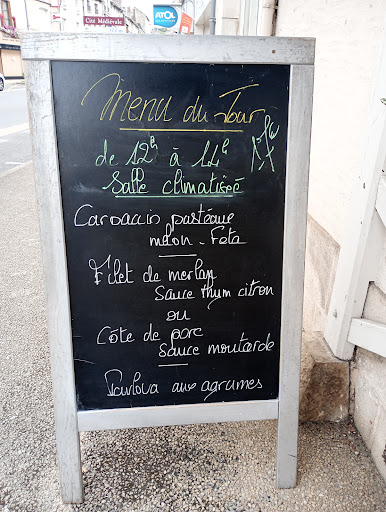 Cité Médiévale
ATOL
Menu du Jour
de 12h à 14h
Salle climatisée
Carpaccio pastèque
melon - Feta
Filet de merlan
Sauce thym citron
ou
Côte de porc
Sauce moutarde
Pavlova aux agrumes